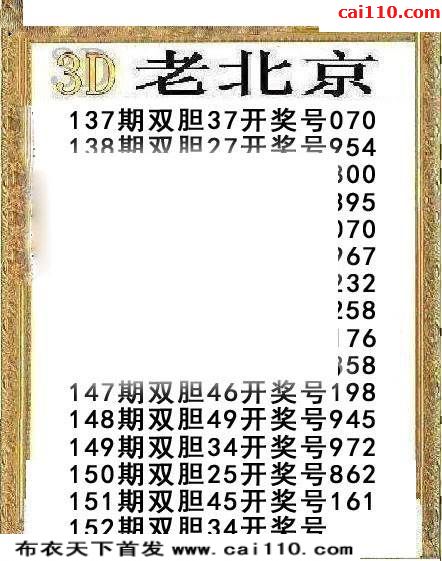 cai110.com
3D 老北京
137期双胆37开奖号070
138期双胆27开奖号954
300
395
070
967
232
258
176
358
147期双胆46开奖号198
148期双胆49开奖号945
149期双胆34开奖号972
150期双胆25开奖号862
151期双胆45开奖号161
152期双胆34开奖号
布衣天下首发 www.cai110.com